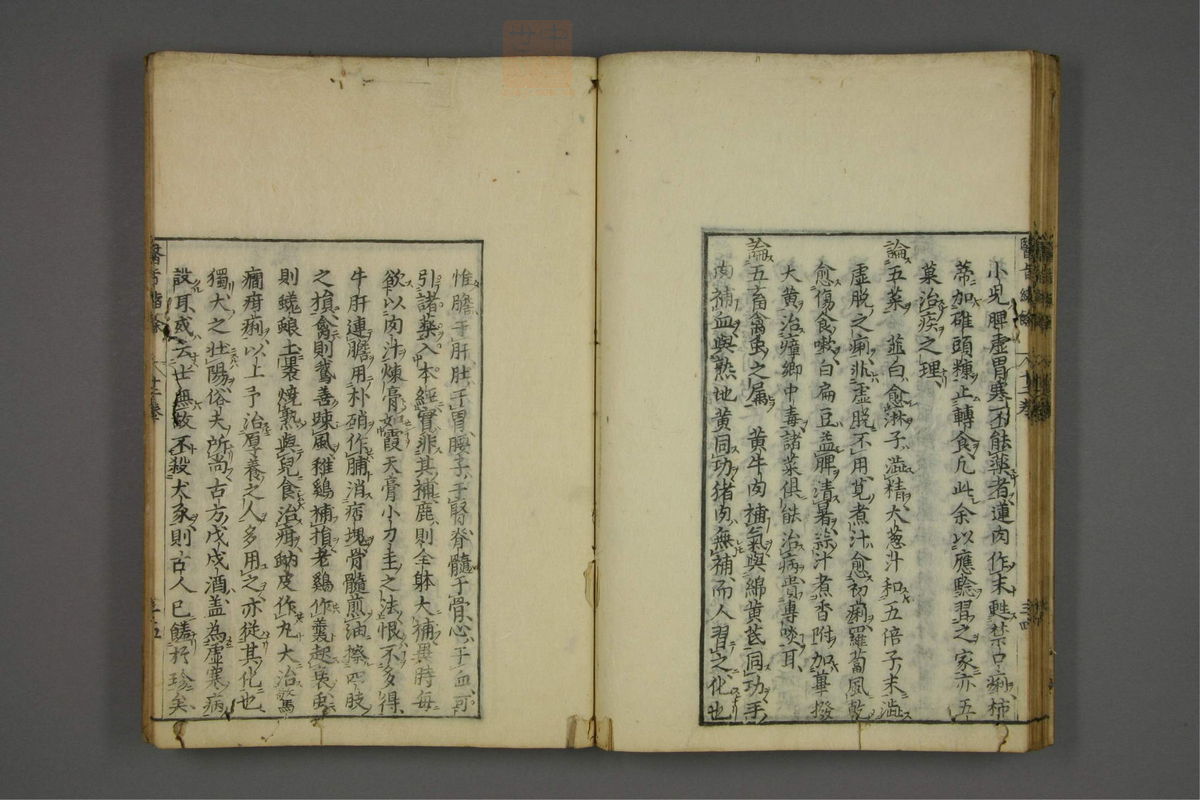 小児脾虚胃寒不能藥者蓮肉作末甦禁口痢柿
蒂加碓頭糠止轉食凢此余以應驗習之家亦五
菓治疾之理
論五菜 韮白愈淋子澁精大葱汁和五倍子末澁
虚脱之痢非虚脱不用莧煮汁愈初痢羅蔔風乾
愈傷食嗽白扁豆益脾清暑蒜汁煮香附加蓽撥
大黄治瘴郷中毒諸菜俱能治病貴專啖耳
論五畜禽虫之屬 黄牛肉補氣與綿黄芪同功羊
肉補血與熟地黄同功猪肉無補而人習之化也
惟膽于肝肚于胃腰子于腎脊髓于骨心于血可
引諸藥入本經實非其補鹿則全躰大補畏時每
欲以肉汁煉膏如霞天膏小刀圭之法恨不多得
牛肝連膽用朴硝作脯消痞塊骨髓煎油擦四肢
之損禽則鵞善踈風稚鷄補損老鷄作羹起衰虫
則蜣蜋土裹燒熟與兒食治疳蚋皮作丸大治驚
癇疳痢以上予治厚養之人多用之亦從其化也
獨犬之壯陽俗夫所尚古方戊戌酒盖為虚寒病
設耳或云士無故不殺犬豕則古人已饈於珍矣